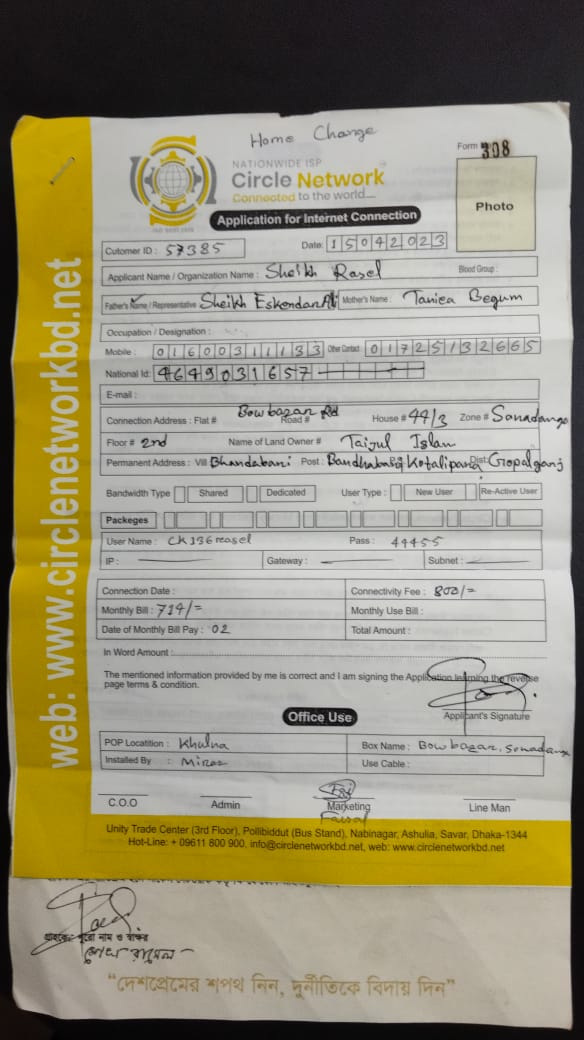 Home Change
Form # 308
NATIONWIDE ISP
Circle Network
Connected to the world....
ISO 9001 : 2015
Application for Internet Connection
Photo
Cutomer ID : 57385
Date: 15042023
Applicant Name / Organization Name : Sheikh Rasel Blood Group :
Father's Name / Representative Sheikh Eskendar Ali Mother's Name : Begum
Occupation / Designation :
Mobile : 01600311133 Other Contact 01725132665
National Id: 4649031657
E-mail :
Connection Address : Flat # Bowbazar Rd Road # House # 44/3 Zone # Sonadanga
Floor # 2nd Name of Land Owner # Taijul Islam
Permanent Address : Vill Bhandabari Post : Kotalipara Dist: Gopalganj
Bandwidth Type Shared Dedicated User Type : New User Re-Active User
Packeges
User Name : Pass : 44455
IP : Gateway : Subnet :
Connection Date : Connectivity Fee : 800/=
Monthly Bill : 714/= Monthly Use Bill :
Date of Monthly Bill Pay : 02 Total Amount :
In Word Amount :
The mentioned information provided by me is correct and I am signing the Application learning the reverse
page terms & condition.
Applicant's Signature
Office Use
POP Locatition : Khulna Box Name : Bowbazar, Sonadanga
Installed By : Miraz Use Cable :
C.O.O Admin Marketing Line Man
Faisal
Unity Trade Center (3rd Floor), Pollibiddut (Bus Stand), Nabinagar, Ashulia, Savar, Dhaka-1344
Hot-Line: + 09611 800 900. info@circlenetworkbd.net, web: www.circlenetworkbd.net
web: www.circlenetworkbd.net
গ্রাহকের পুরো নাম ও স্বাক্ষর
শেখ রাসেল
“দেশপ্রেমের শপথ নিন, দুর্নীতিকে বিদায় দিন”